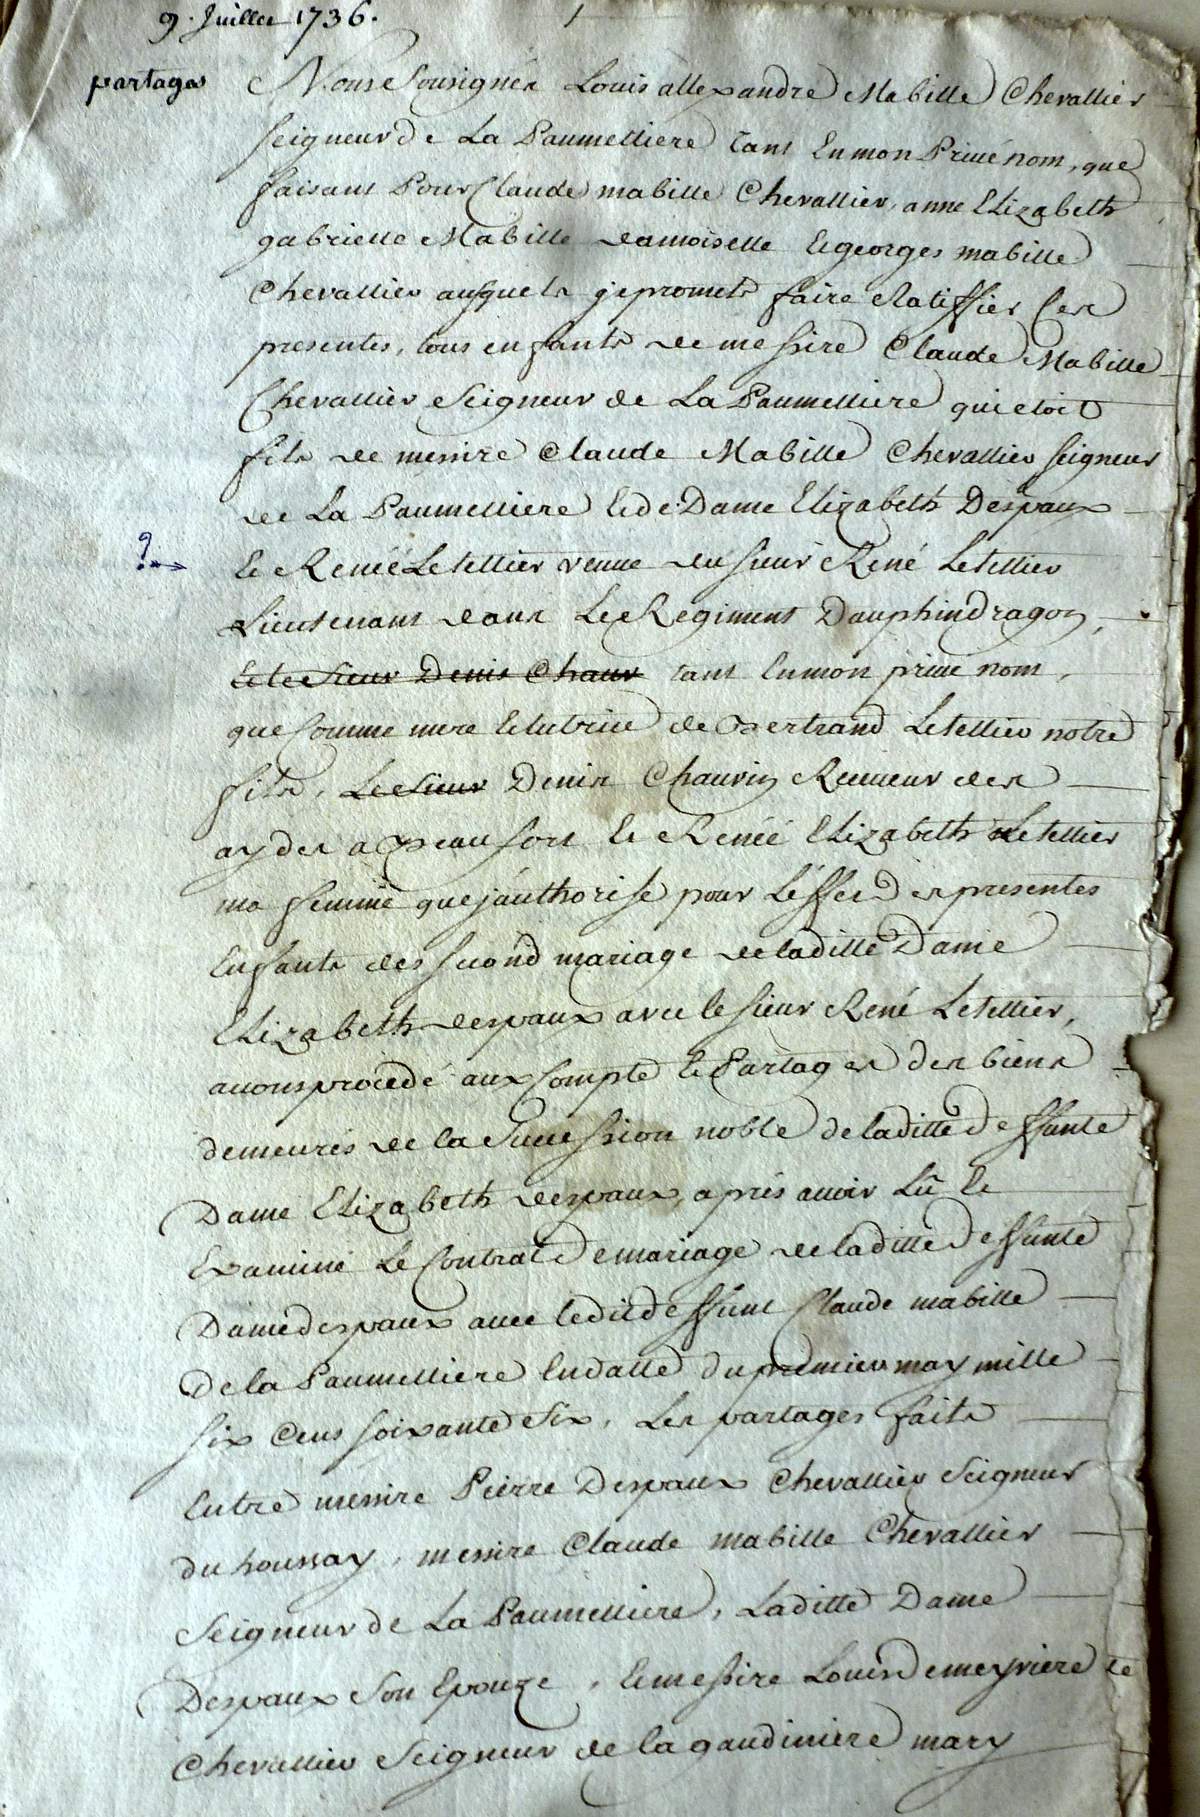 9. Juillet 1736.
1
partages
Nous Sousignés Louis allexandre Mabille Chevallier
seigneur de La Paumelliere tant En mon Privé nom, que
faisant Pour Claude mabille Chevallier, anne Elizabeth
gabrielle Mabille damoiselle Et georges mabille
Chevallier ausquels je promets faire Ratiffier Ces
presentes, tous enfants de messire Claude Mabille
Chevallier Seigneur de La Paumelliere qui etoit
fils de messire Claude Mabille Chevallier seigneur
de La Paumelliere Et de Dame Elizabeth Despaux
?
Et Renéé Letellier veuve du sieur René Letellier
Lieutenant dans Le Regiment Dauphin dragon,
Et le Sieur Denis Chauv tant En mon privé nom,
que Comme mere Et tutrice de Bertrand Letellier notre
fils, Le Sieur Denis Chauvin Receveur des
aydes a Beaufort Et Renéé Elizabeth Letellier
ma femme que j'authorise pour L'effet des presentes
Enfants des second mariage de laditte Dame
Elizabeth despaux avec le sieur René Letellier,
avons procedé aux Compte Et Partages des biens
demeurés de la Succession noble de laditte deffunte
Dame Elizabeth despaux, aprés avoir Lû Et
Examiné Le Contrat de mariage de laditte deffunte
Dame despaux avec ledit deffunt Claude mabille
De la Paumelliere En datte du premier may mille
six Cens soixante Six, Les partages faits
Entre messire Pierre Despaux Chevallier Seigneur
du houssay, messire Claude mabille Chevallier
Seigneur de La Paumelliere, Laditte Dame
Despaux Son Epouze, Et messire Louis demeyviere
Chevallier Seigneur de la gaudiniere mary